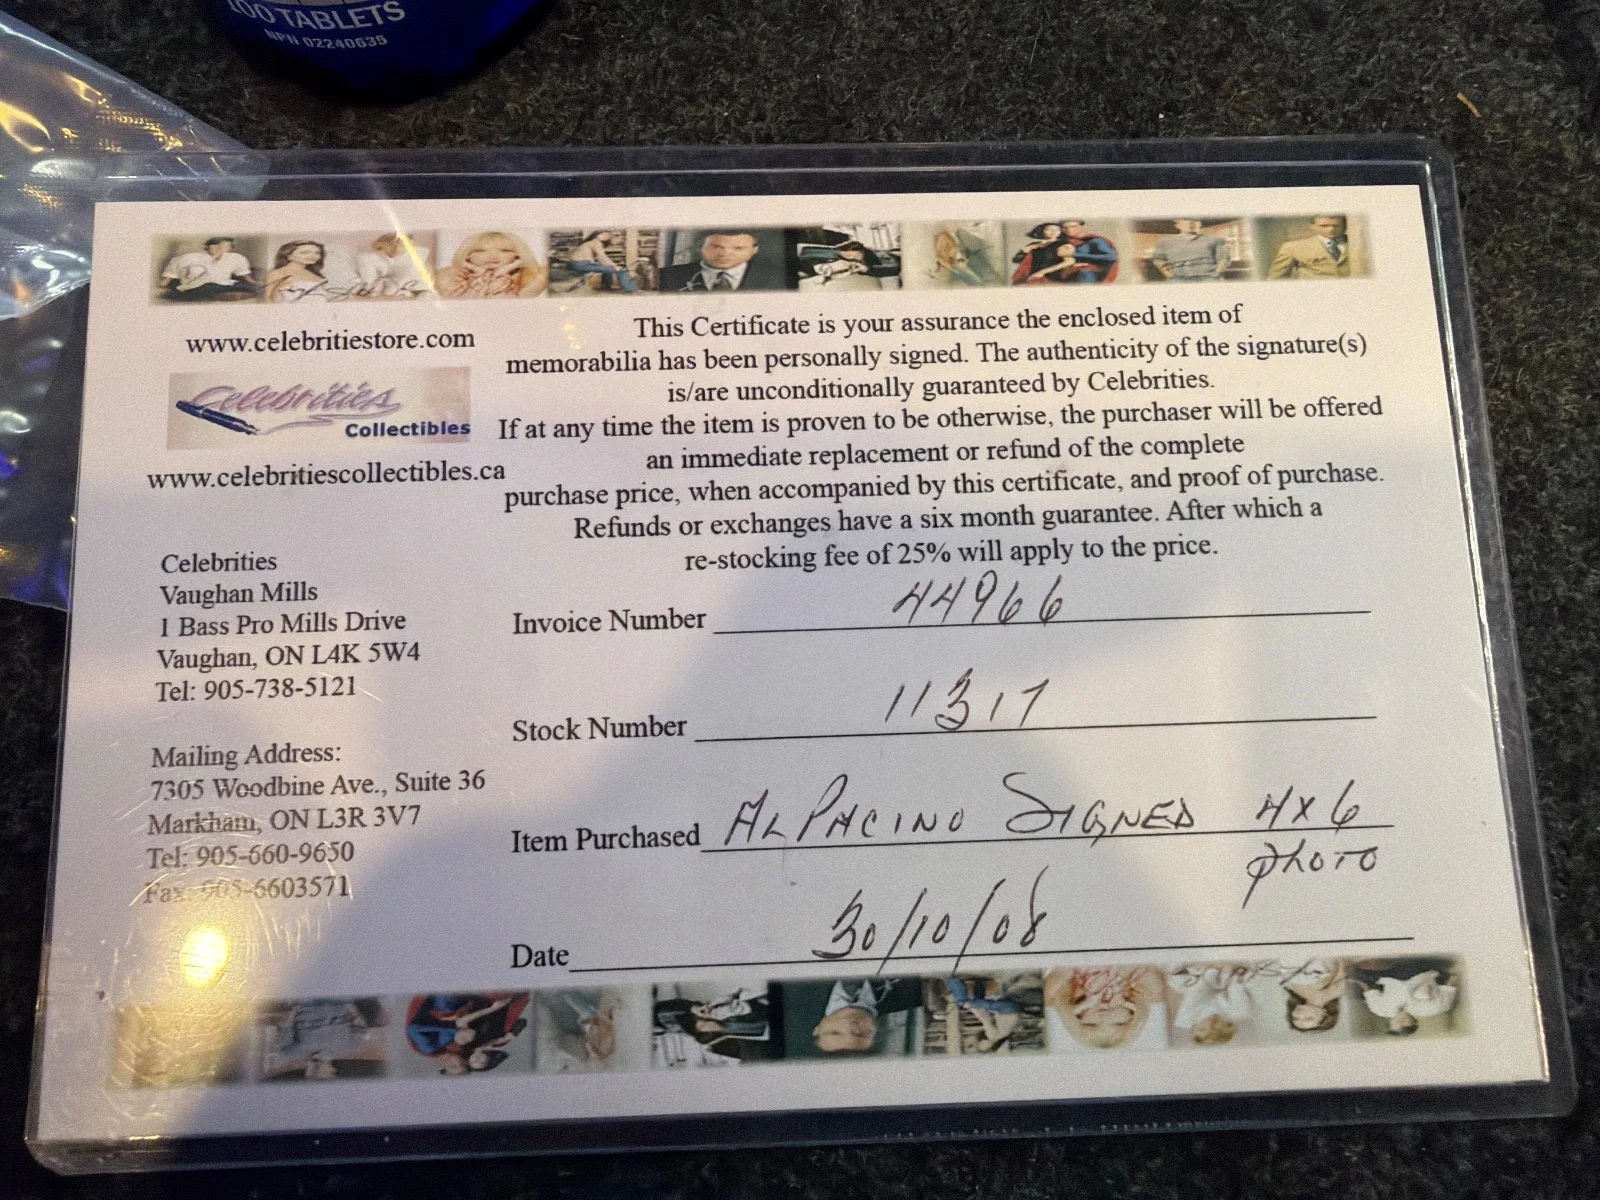 100 TABLETS
NPN 02240635
www.celebritiestore.com
Celebrities
Collectibles
www.celebritiescollectibles.ca
This Certificate is your assurance the enclosed item of
memorabilia has been personally signed. The authenticity of the signature(s)
is/are unconditionally guaranteed by Celebrities.
If at any time the item is proven to be otherwise, the purchaser will be offered
an immediate replacement or refund of the complete
purchase price, when accompanied by this certificate, and proof of purchase.
Refunds or exchanges have a six month guarantee. After which a
re-stocking fee of 25% will apply to the price.
Celebrities
Vaughan Mills
1 Bass Pro Mills Drive
Vaughan, ON L4K 5W4
Tel: 905-738-5121
Mailing Address:
7305 Woodbine Ave., Suite 36
Markham, ON L3R 3V7
Tel: 905-660-9650
Fax: 905-6603571
Invoice Number 44966
Stock Number 11317
Item Purchased AL PACINO SIGNED 4x6
PHOTO
Date 30/10/08